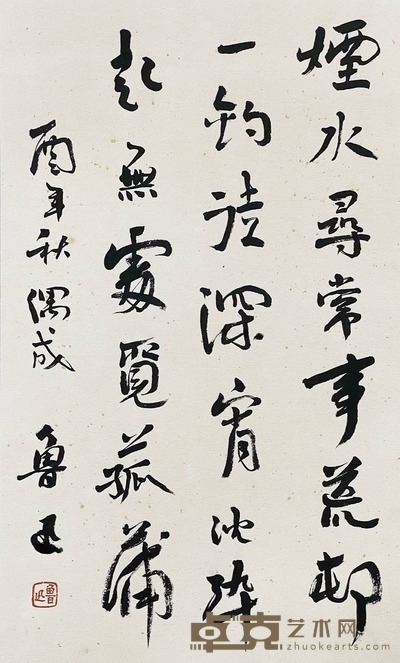 煙水尋常事荒邨
一釣徒深宵沈醉
起無處覓菰蒲
酉年秋偶成
魯迅
魯迅
卓克艺术网
zhuokearts.com